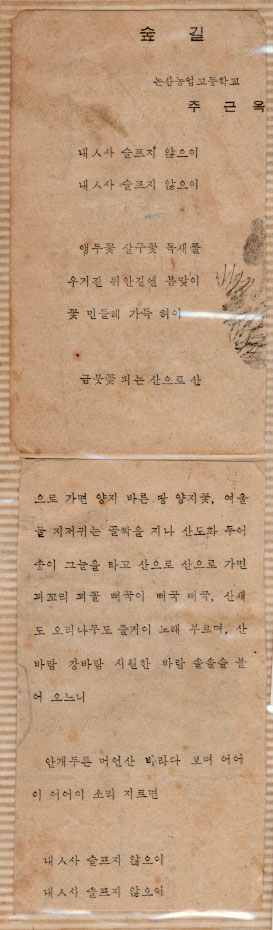 숲 길
논산농업고등학교
주 근 옥
내사 슬프지 않으이
내사 슬프지 않으이
앵두꽃 살구꽃 독새풀
우거진 뒤안길엔 봄맞이
꽃 민들레 가득 허이
금붓꽃 피는 산으로 산
으로 가면 양지 바른 땅 양지꽃, 여울
물 지저귀는 골짝을 지나 산도화 두어
송이 그늘을 타고 산으로 산으로 가면
꾀꼬리 꾀꼴 뻐꾹이 뻐꾹 뻐꾹, 산새
도 오리나무도 즐거이 노래 부르며, 산
바람 강바람 시원한 바람 솔솔솔 불
어 오느니
안개두른 머언산 바라다 보며 어어
이 어어이 소리 지르면
내사 슬프지 않으이
내사 슬프지 않으이